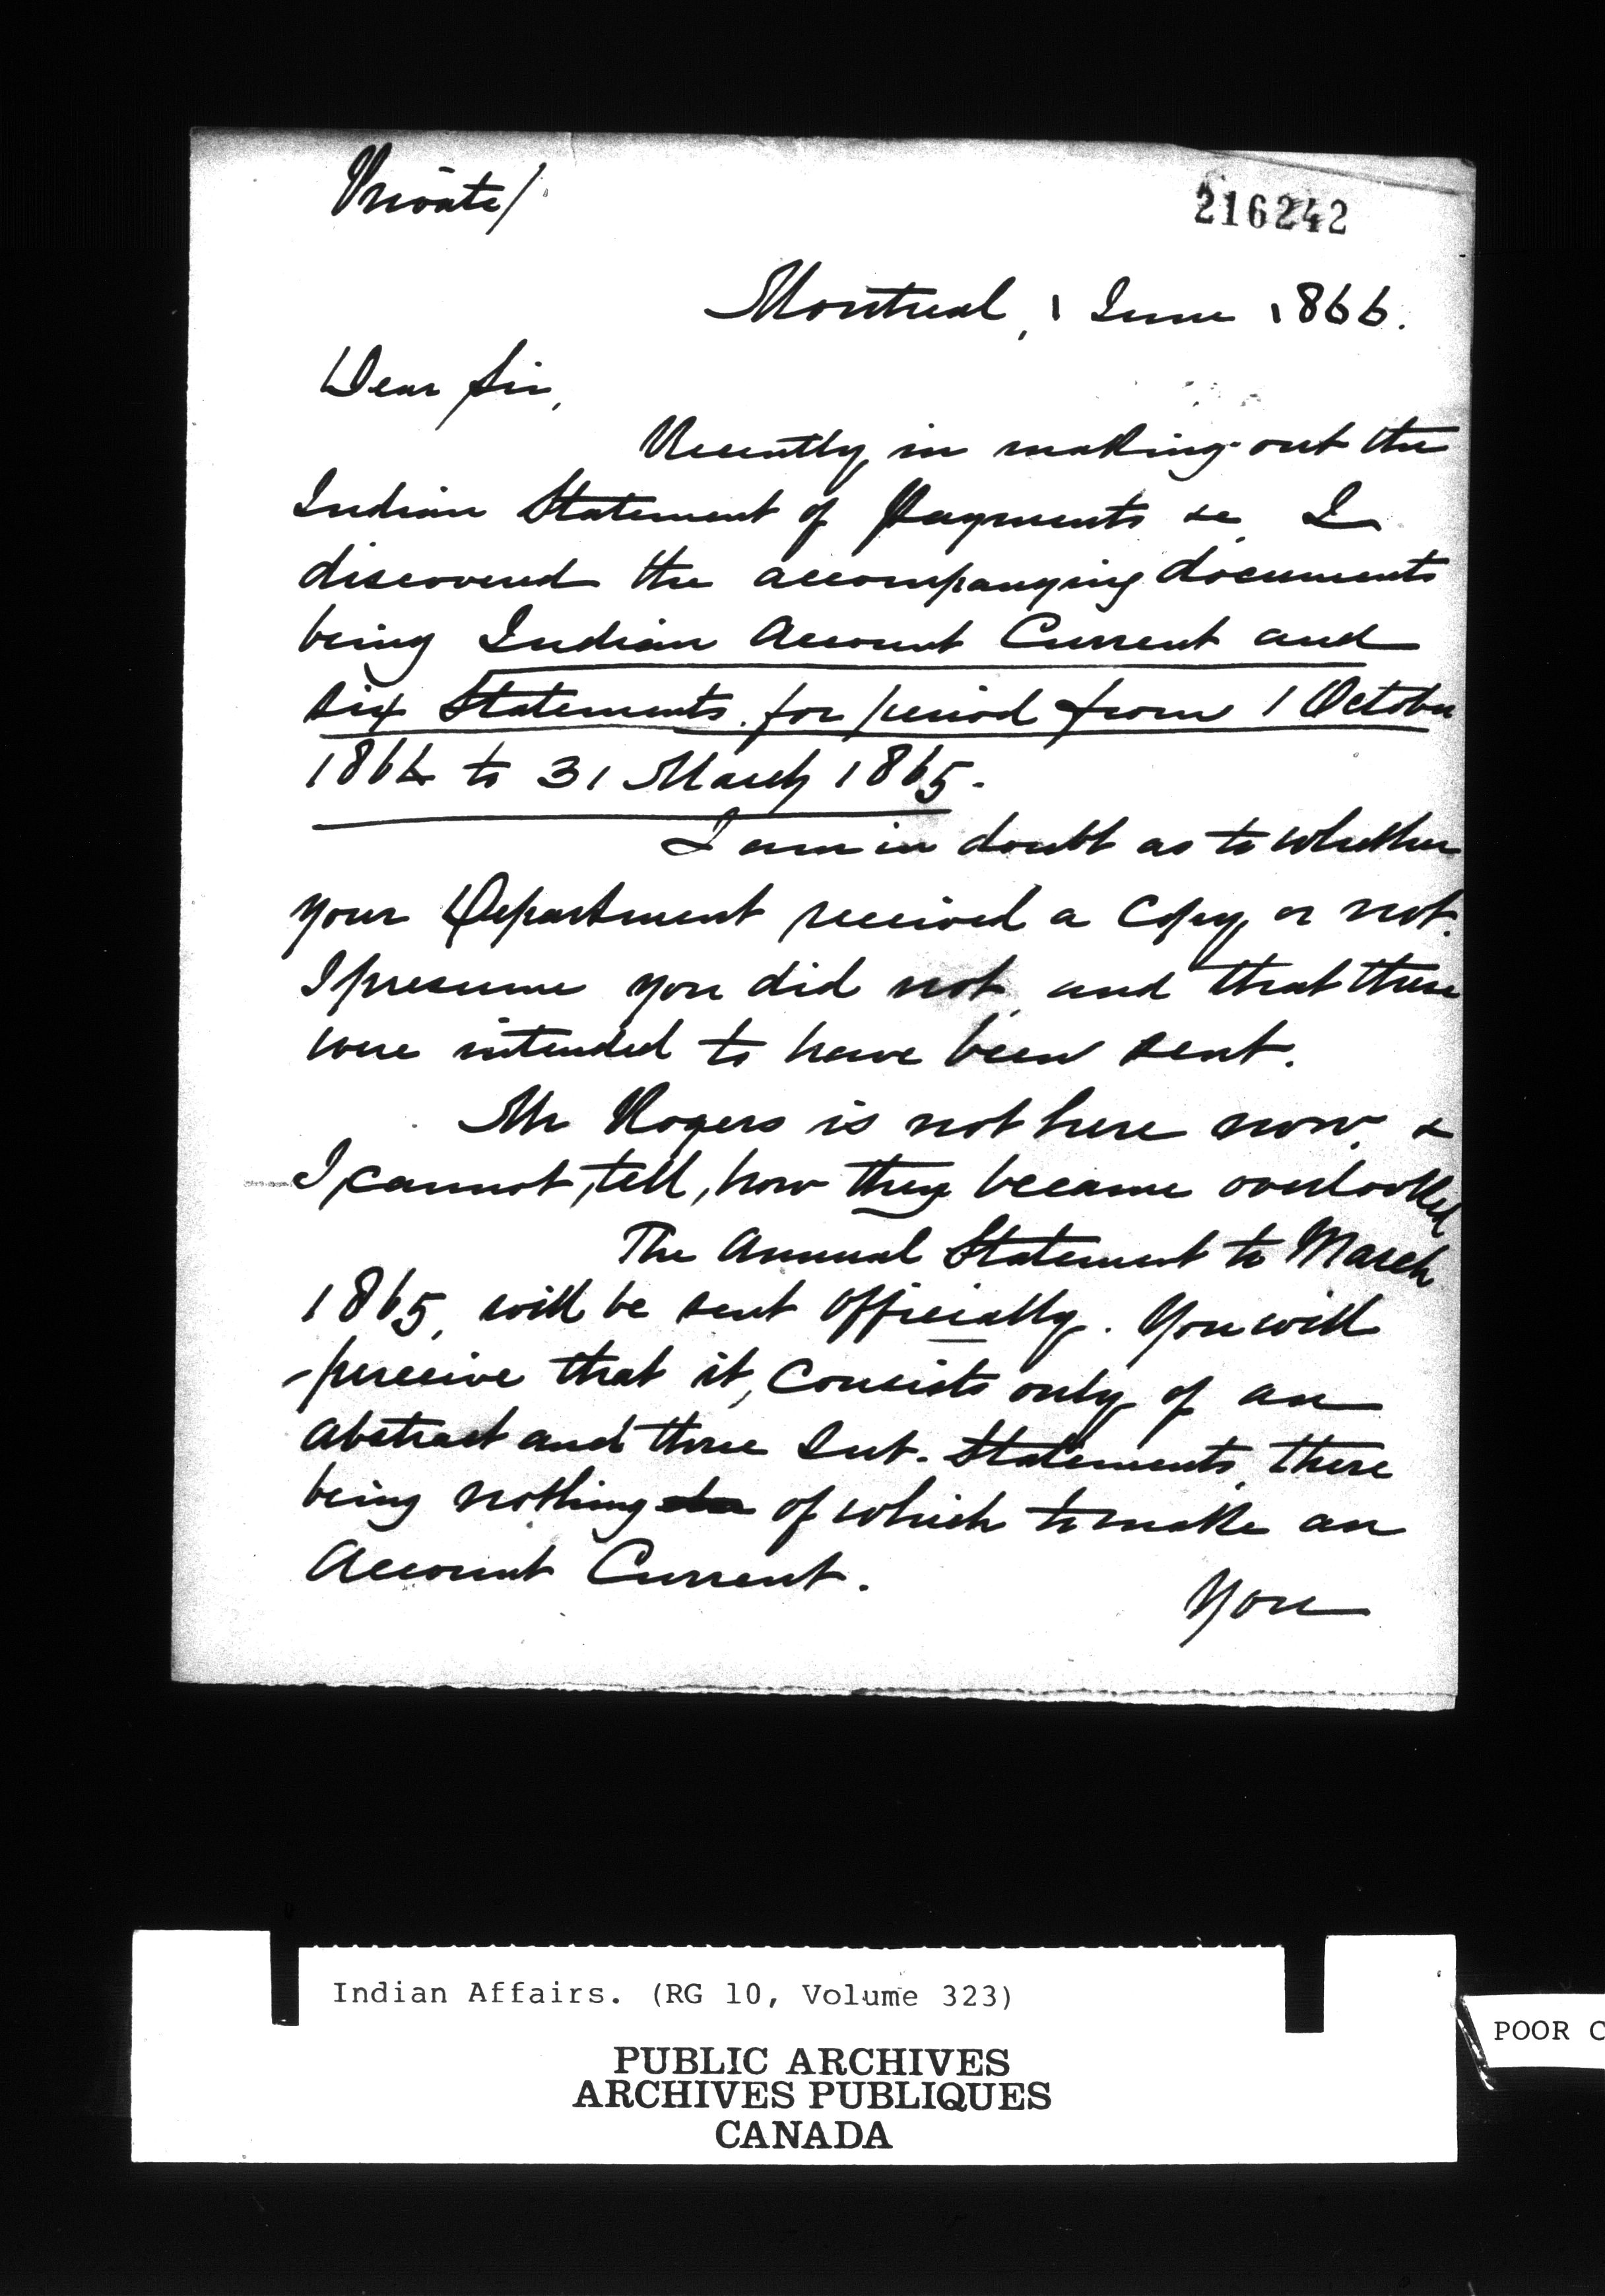 Private/
216242
Montreal, 1 June 1866.
Dear Sir,
Recently in making out the
Indian Statement of Payments &c I
discovered the accompanying documents
being Indian Account Current and
six Statements for period from 1 October
1864 to 31 March 1865.
I am in doubt as to whether
your Department received a Copy or not.
I presume you did not and that these
were intended to have been sent.
Mr Rogers is not here now &
I cannot, tell, how they became overlooked
The Annual Statement to March
1865, will be sent officially. You will
perceive that it, Consists only of an
Abstract and three Sub. Statements, there
being nothing of which to make an
Account Current.
You
Indian Affairs. (RG 10, Volume 323)
PUBLIC ARCHIVES
ARCHIVES PUBLIQUES
CANADA
POOR C